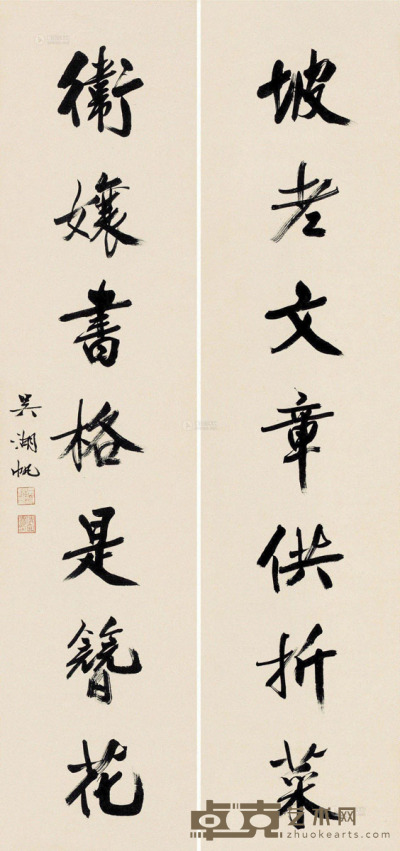 坡老文章供折菜
衛孃書格是簪花
吳湖帆
卓克艺术网
zhuokearts.com